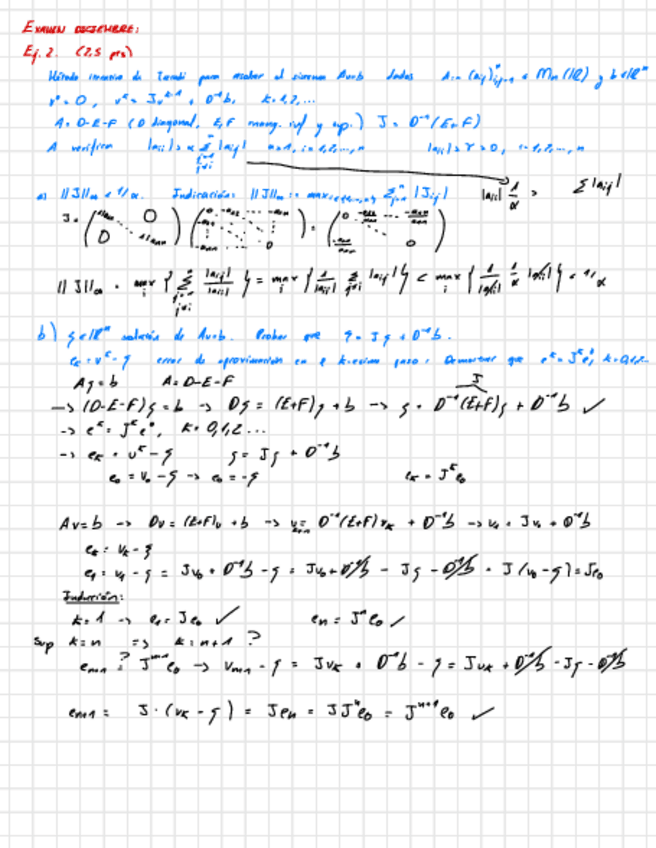 EXAMEN DICIEMBRE:
Ej. 2. (2,5 pts)
Método iterativo de Jacobi para resolver el sistema Av=b dados A = (aij)ⁿi,j=1 ∈ Mn(ℝ) y b∈ℝⁿ
v⁰ = 0, vᵏ = Jvᵏ⁻¹ + D⁻¹b, k=1,2,...
A = D-E-F (D diagonal, E,F inf y sup.) J = D⁻¹(E+F)
A verifica |aii| > α Σ |aij| i=1,2,...,n |aii| > 0, i=1,2,...,n
|aii| 1/α > Σ|aij|
a) ||J||∞ < 1/α. Indicación: ||J||∞ = max Σ |Jij|
J =
||J||∞ = max i { Σ j≠i |aij|/|aii| } = max i { 1/|aii| Σ j≠i |aij| } < max i { 1/|aii| 1/α |aii| } = 1/α
b) ξ∈ℝⁿ solución de Av=b. Probar que ξ = Jξ + D⁻¹b.
eᵏ = vᵏ - ξ error de aproximación en el k-ésimo paso. Demostrar que eᵏ = Jᵏe⁰, k=0,1,2...
Aξ = b A = D-E-F
J
→ (D-E-F)ξ = b → Dξ = (E+F)ξ + b → ξ = D⁻¹(E+F)ξ + D⁻¹b ✓
→ eᵏ = Jᵏe⁰, k=0,1,2...
→ ek = vᵏ - ξ ξ = Jξ + D⁻¹b
e0 = v0 - ξ → e0 = -ξ ek = Jᵏe0
Av = b → Dv = (E+F)v + b → vk+1 = D⁻¹(E+F)vk + D⁻¹b → v1 = Jv0 + D⁻¹b
ek = vk - ξ
e1 = v1 - ξ = Jv0 + D⁻¹b - ξ = Jv0 + D⁻¹b - Jξ - D⁻¹b = J(v0 - ξ) = Je0
Inducción:
k = 1 → e1 = Je0 ✓ en = Jⁿe0 ✓
Sup k = n ⇒ k = n+1 ?
en+1 =? Jⁿ⁺¹e0 → vn+1 - ξ = Jvk + D⁻¹b - ξ = Jvk + D⁻¹b - Jξ - D⁻¹b
en+1 = J·(vk - ξ) = Jen = JJⁿe0 = Jⁿ⁺¹e0 ✓